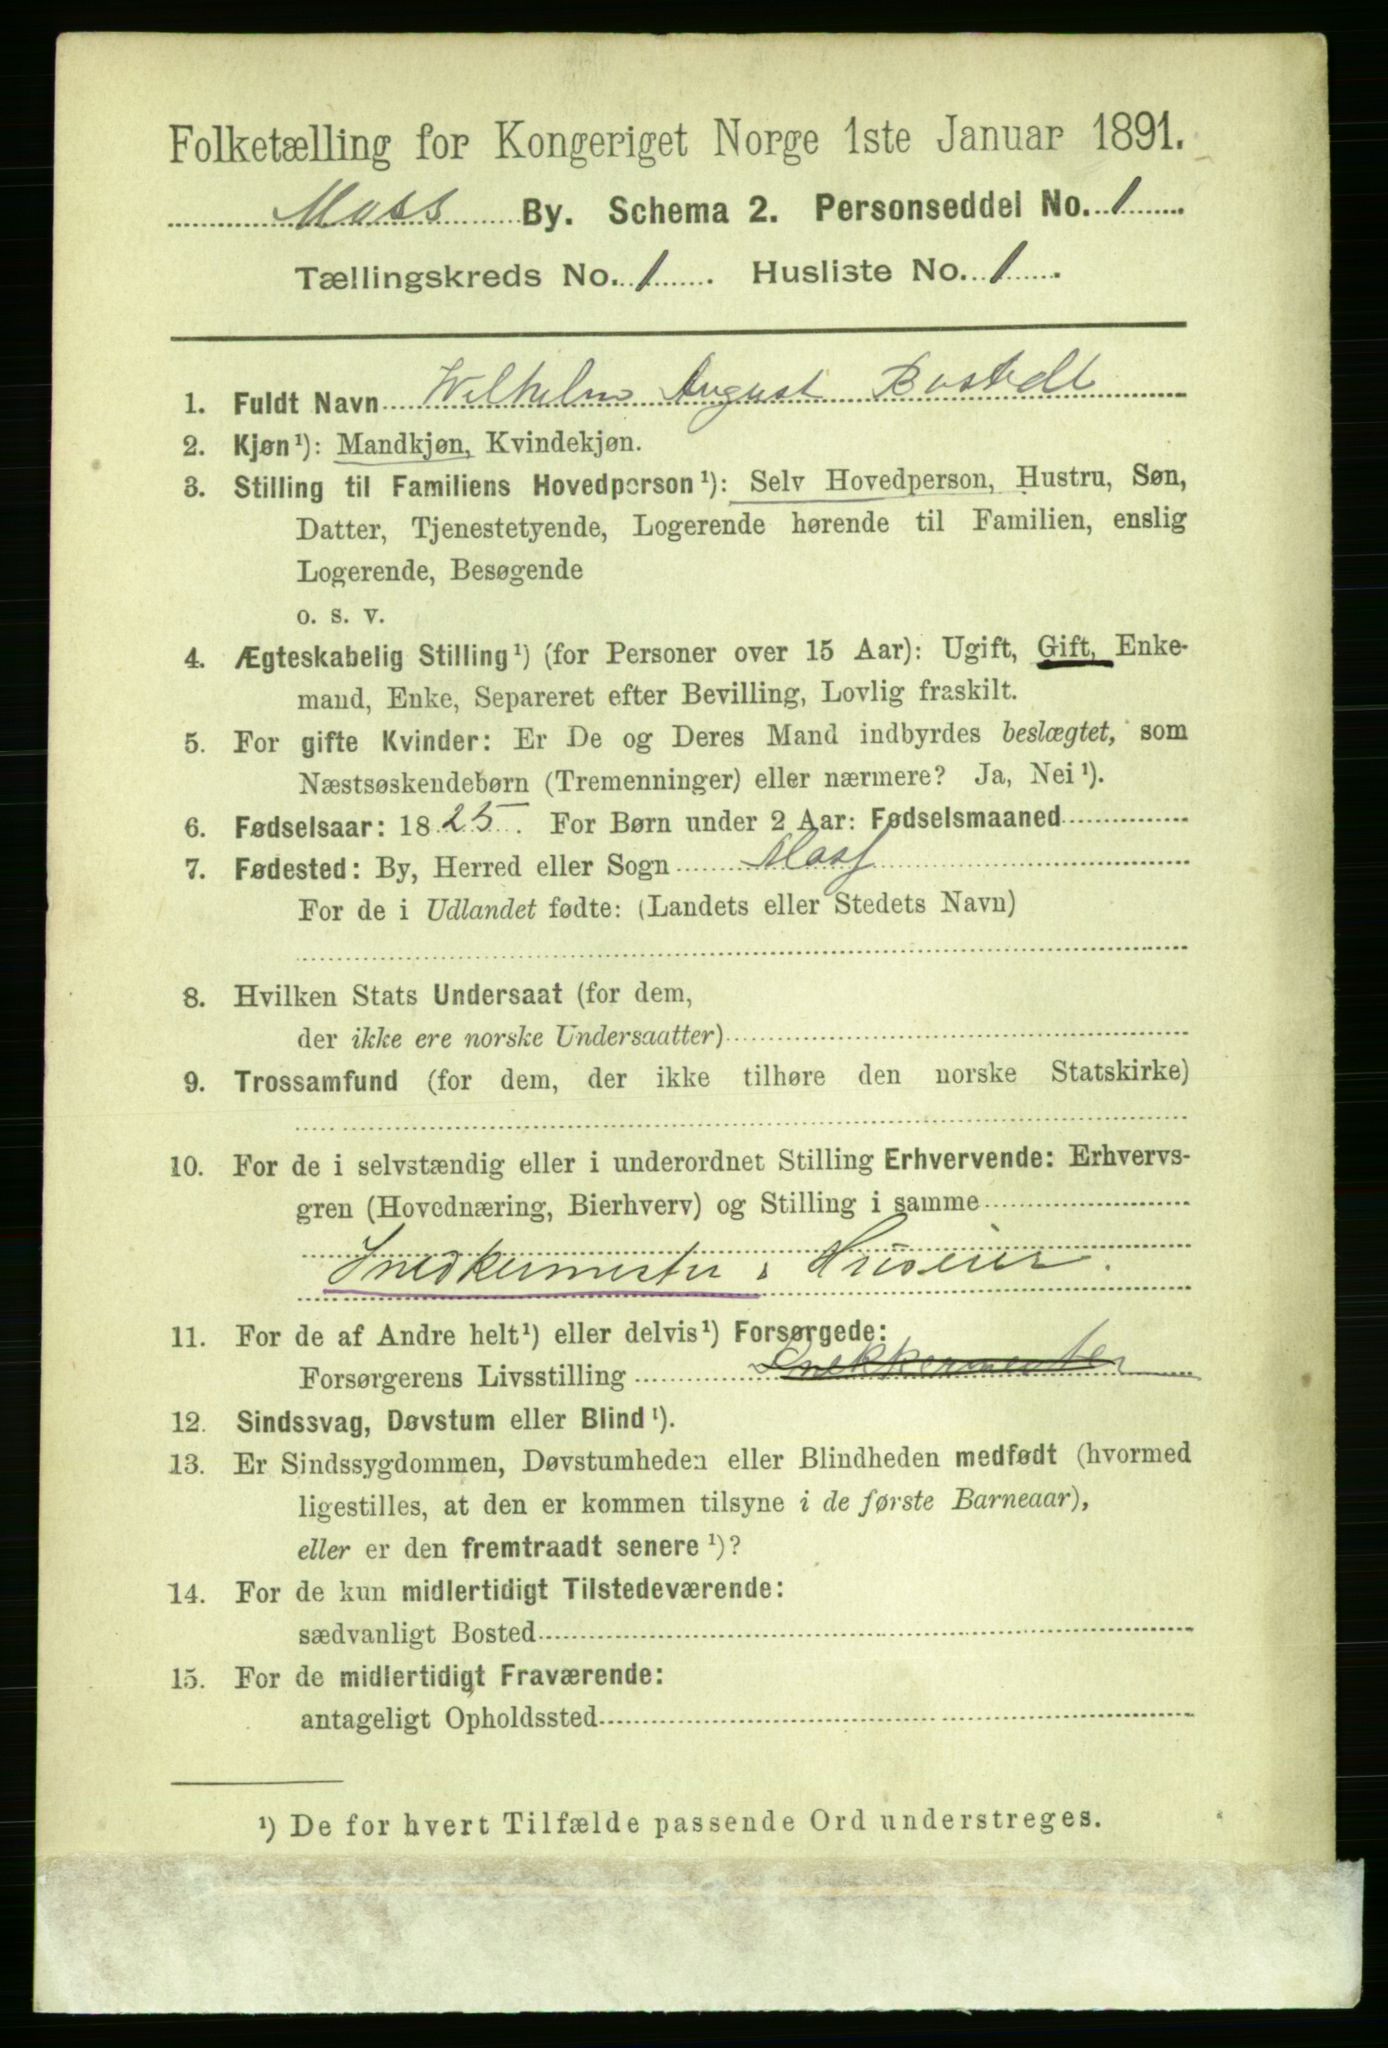 Folketælling for Kongeriget Norge 1ste Januar 1891.
Moss By. Schema 2. Personseddel No. 1
Tællingskreds No. 1. Husliste No. 1.
1. Fuldt Navn Wilhelm August Bostedt
2. Kjøn¹): Mandkjøn, Kvindekjøn.
3. Stilling til Familiens Hovedperson¹): Selv Hovedperson, Hustru, Søn,
Datter, Tjenestetyende, Logerende hørende til Familien, enslig
Logerende, Besøgende
o. s. v.
4. Ægteskabelig Stilling¹) (for Personer over 15 Aar): Ugift, Gift, Enke-
mand, Enke, Separeret efter Bevilling, Lovlig fraskilt.
5. For gifte Kvinder: Er De og Deres Mand indbyrdes beslægtet, som
Næstsøskendebørn (Tremenninger) eller nærmere? Ja, Nei¹).
6. Fødselsaar: 1825. For Børn under 2 Aar: Fødselsmaaned
7. Fødested: By, Herred eller Sogn Moss
For de i Udlandet fødte: (Landets eller Stedets Navn)
8. Hvilken Stats Undersaat (for dem,
der ikke ere norske Undersaatter)
9. Trossamfund (for dem, der ikke tilhøre den norske Statskirke)
10. For de i selvstændig eller i underordnet Stilling Erhvervende: Erhvervs-
gren (Hovednæring, Bierhverv) og Stilling i samme
Snedkermester & Huseier.
11. For de af Andre helt¹) eller delvis¹) Forsørgede:
Forsørgerens Livsstilling Snekkermester
12. Sindssvag, Døvstum eller Blind¹).
13. Er Sindssygdommen, Døvstumheden eller Blindheden medfødt (hvormed
ligestilles, at den er kommen tilsyne i de første Barneaar),
eller er den fremtraadt senere¹)?
14. For de kun midlertidigt Tilstedeværende:
sædvanligt Bosted
15. For de midlertidigt Fraværende:
antageligt Opholdssted
¹) De for hvert Tilfælde passende Ord understreges.